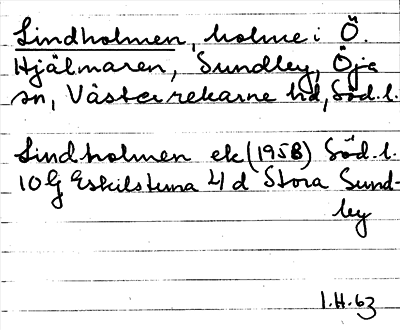 Lindholmen, holme i Ö.
Hjälmaren, Sundley, Öja
sn, Västerrekarne hd, Söd.l.
Lindholmen ek (1958) Söd.l.
10G Eskilstuna 4d Stora Sund-
ley
I.H.63